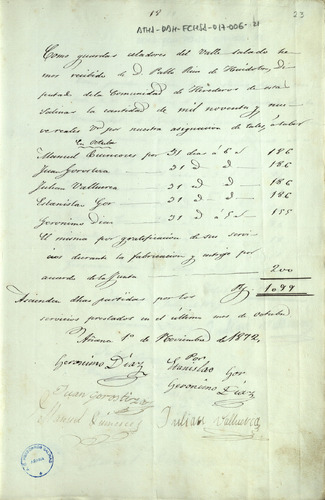 18
23
ATHA-DAH-FCMSA-017-006-21
Como guardas celadores del Valle salado he
mos recibido de D. Pablo Ruiz de Heridotes, di
putado de la Comunidad de Herederos de esta
Salinas la cantidad de mil noventa y nue
ve reales vn por nuestra asignacion de tales, a saber
En Octubre
Manuel Quincoces por 31 dias á 6 rs 186
Juan Gorostiza 31 d d 186
Julian Valluerca 31 d d 186
Estanislao Gor 31 d d 186
Geronimo Diaz 31 d á 5 rs 155
El mismo por gratificacion de sus servi
cios durante la fabricacion y entroje por
acuerdo de la Junta 200
Rs 1099
Ascienden dhas partidas por los
servicios prestados en el último mes de Octubre
Añana 1º de Noviembre de 1872,
Geronimo Díaz
Por Stanislao Gor
Geronimo Díaz
Juan Gorostiza
Manuel Quincoces
Julian Valluerca